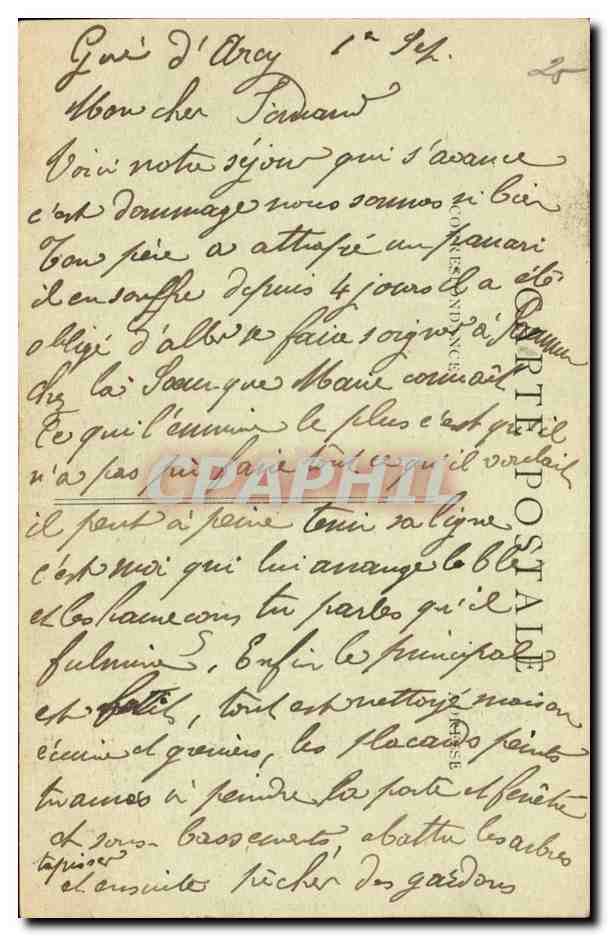 Gué d'Arcy 1er Sep.
25
Mon cher Fernand
Voici notre séjour qui s'avance
c'est dommage nous sommes si bien
Ton père a attrapé un panari
il en souffre depuis 4 jours il a été
obligé d'aller se faire soigner à
chez la Soeur que Marie connait
Ce qui l'ennuie le plus c'est qu'il
n'a pas pu faire tout ce qu'il voulait
il peut à peine tenir sa ligne
c'est moi qui lui arrange le blé
et les hameçons tu parles qu'il
fulmine, Enfin le principal
est fait, tout est nettoyé maison
écurie et greniers, les placards peints
tu amos à peindre la porte et fenêtre
et sous-bassements, abattu les arbres
tapisser
et ensuite pêcher des gardons
CARTE POSTALE
CORRESPONDANCE
ADRESSE
CPAPHIL